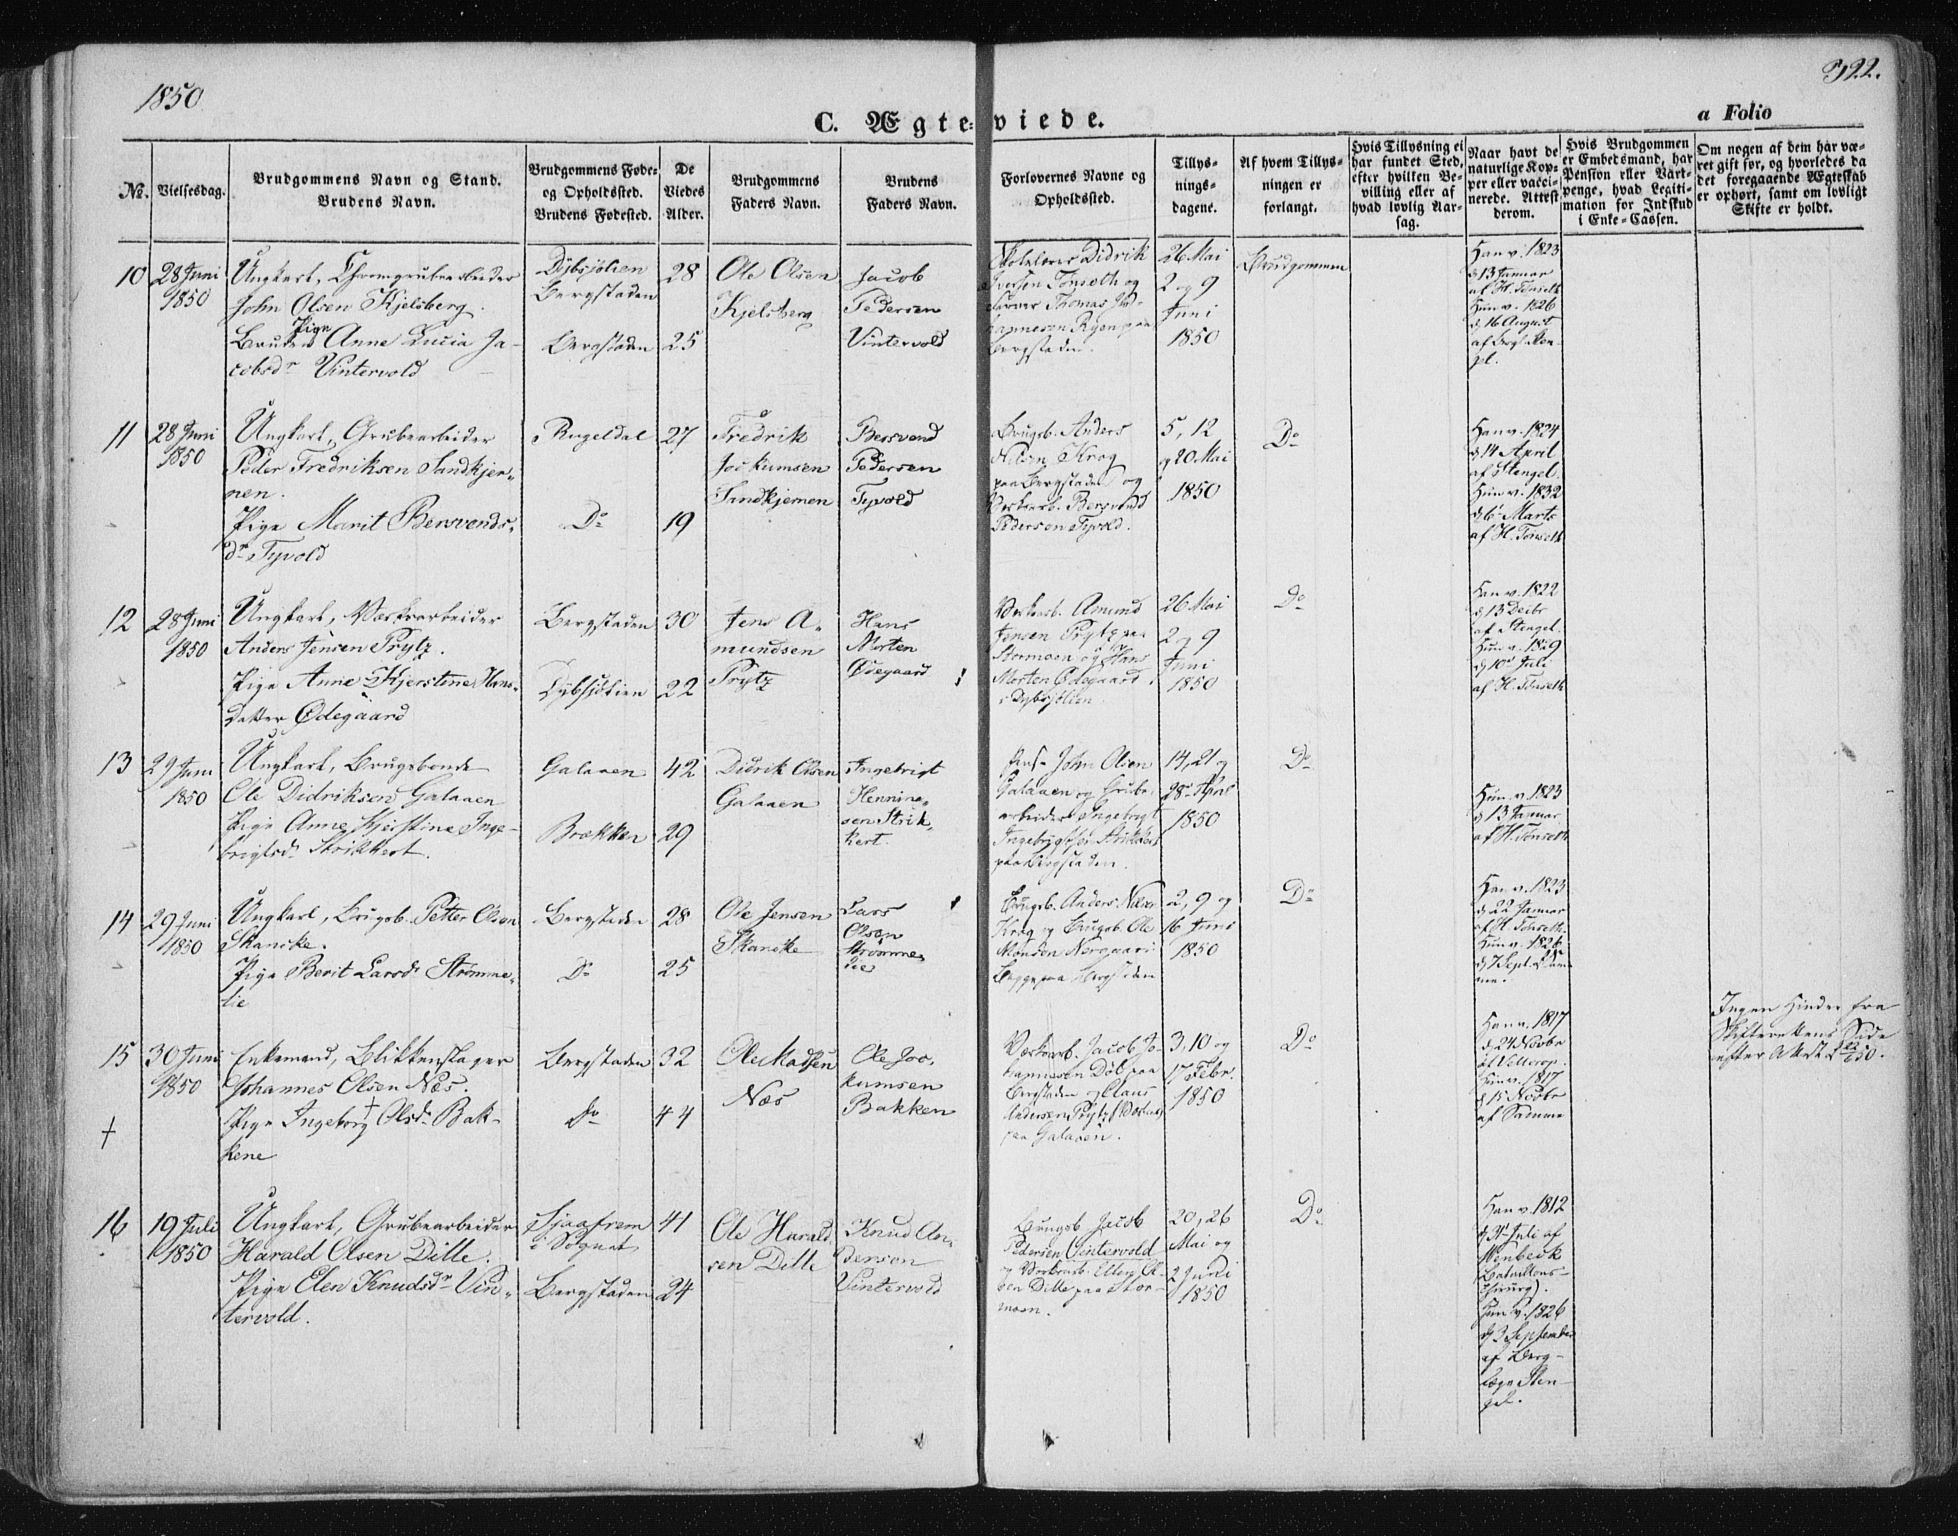 1850
322.
C. Ægte-viede.
a Folio
No.
Vielsesdag.
Brudgommens Navn og Stand.
Brudens Navn.
Brudgommens Føde-
og Opholdssted.
Brudens Fødested.
De
Viedes
Alder.
Brudgommens
Faders Navn.
Brudens
Faders Navn.
Forlovernes Navne og
Opholdssted.
Tillys-
nings-
dagene.
Af hvem Tillys-
ningen er
forlangt.
Hvis Tillysning ei
har fundet Sted,
efter hvilken Be-
villing eller af
hvad lovlig Aar-
sag.
Naar havt de
naturlige Kop-
per eller vacci-
nerede. Attest
derom.
Hvis Brudgommen
er Embedsmand, har
Pension eller Vart-
penge, hvad Legiti-
mation for Indskud
i Enke-Cassen.
Om nogen af dem har væ-
ret gift før, og hvorledes da
det foregaaende Ægteskab
er ophørt, samt om lovligt
Skifte er holdt.
10
28 Juni
1850
Ungkarl, Chromgrubearbeider
John Olsen Kjelsberg.
Pige
Bruden Anne Lucia Ja-
cobsdr Vintervold
Dybsjølien
Bergstaden
Bergstaden
28
25
Ole Olsen
Kjelsberg
Jacob
Pedersen
Vintervold
Skolelærer Didrik
Iversen Tønseth og
Thomas Jo-
hannesen Ryen paa
Bergstaden.
26 Mai
2 og 9
Juni
1850
Brudgommen
Han v. 1823
d 13 Januar
af H. Tønseth
Hun v. 1826
d 16 August
af Bergl. Sten-
gel.
11
28 Juni
1850
Ungkarl, Grubearbeider
Peder Fredriksen Sandkjer-
nen.
Pige Marit Bersvends-
dr Tyvold
Rugeldal
Do
27
19
Fredrik
Jockumsen
Sandkjernen
Bersvend
Pedersen
Tyvold
Brugsb. Anders
Nilsen Krog
paa Bergstaden og
Værksarb. Bersvend
Pedersen Tyvold.
5, 12
og 20 Mai
1850
Do
Han v. 1824
d 14 April
af Stengel.
Hun v. 1832
d 6 Marts
af H. Tønseth
12
28 Juni
1850
Ungkarl, Værksarbeider
Anders Jensen Prytz.
Pige Anne Kjerstine Hans-
datter Ødegaard
Bergstaden
Dybsjølien
30
22
Jens A-
mundsen
Prytz
Hans
Morten
Ødegaard
Værksarb. Amund
Jensen Prytz paa
Stormoen og Hans
Morten Ødegaard
i Dybsjølien
26 Mai
2 og 9
Juni
1850
Do
Han v. 1822
d 13 Decbr
af Stengel.
Hun v. 1829
d 10 Juli
af H. Tønseth
13
29 Juni
1850
Ungkarl, Brugsbonde
Ole Didriksen Galaaen
Pige Anne Kjerstine Inge-
brigtsdr Strikkert.
Galaaen
Brækken
42
29
Didrik Olsen
Galaaen
Ingebrigt
Hennings-
sen Strik-
kert.
John Olsen
Galaaen og Grube-
arbeider Ingebrigt
Ingebrigtsen Strikkert
paa Bergstaden.
14, 21 og
28 April
1850
Do
Hun v. 1823
d 13 Januar
af H. Tønseth
14
29 Juni
1850
Ungkarl, Brugsb. Petter Olsen
Skancke.
Pige Berit Larsdr Strømme-
lie
Bergstaden
Do
28
25
Ole Jensen
Skancke
Lars
Olsen
Strømme-
lie
Brugsb. Anders Nilsen
Krog og Brugsb. Ole
Monsen Norgaard
Begge paa Bergstaden
2, 9 og
16 Juni
1850
Do
Han v. 1823
d 22 Januar
af H. Tønseth.
Hun v. 1826
d 7 Sept. af Sam-
me.
15
30 Juni
1850
Enkemand, Blikkenslager
Johannes Olsen Næs.
Pige Ingeborg Olsdr Bak-
kene
Bergstaden
Do
32
44
Ole Madsen
Næs
Ole Joc-
kumsen
Bakken
Værksarb. Jacob Jo-
hannesen Døl paa
Bergstaden og Claus
Andersen Prytz
paa Galaaen.
3, 10 og
17 Febr.
1850
Do
Han v. 1817
d 24 Novbr
Hun v. 1817
d 15 Novbr
af Samme
Ingen Hinder fra
Skifterettens Side
efter Akt
16
19 Juli
1850
Ungkarl, Grubearbeider
Harald Olsen Dille.
Pige Elen Knudsdr Vin-
tervold.
i Sognet
Bergstaden
41
24
Ole Harald-
sen Dille
Knud An-
dersen
Vintervold
Brugsb. Jacob
Pedersen Vintervold
og Værksarb. Ellev Ol-
sen Dille paa Stor-
moen.
20, 26
Mai og
2 Juni
1850
Do
Han v. 1812
Juli af
Menbeck
(Bataillons-
chirurg).
Hun v. 1826
d 3 September
af Berg-
læge Sten-
gel.